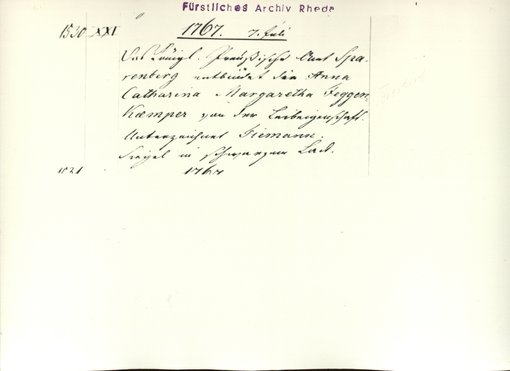 Fürstliches Archiv Rhede
1530 XXI 1767. 7. Juli
Das Königl. Preußische Amt Spa-
renberg entbindet die Anna
Catharina Margaretha Feggen-
Kaemper von der Leibeigenschaft.
Unterzeichnet Tiemann.
Siegel in schwarzem Lack.
1531 1767